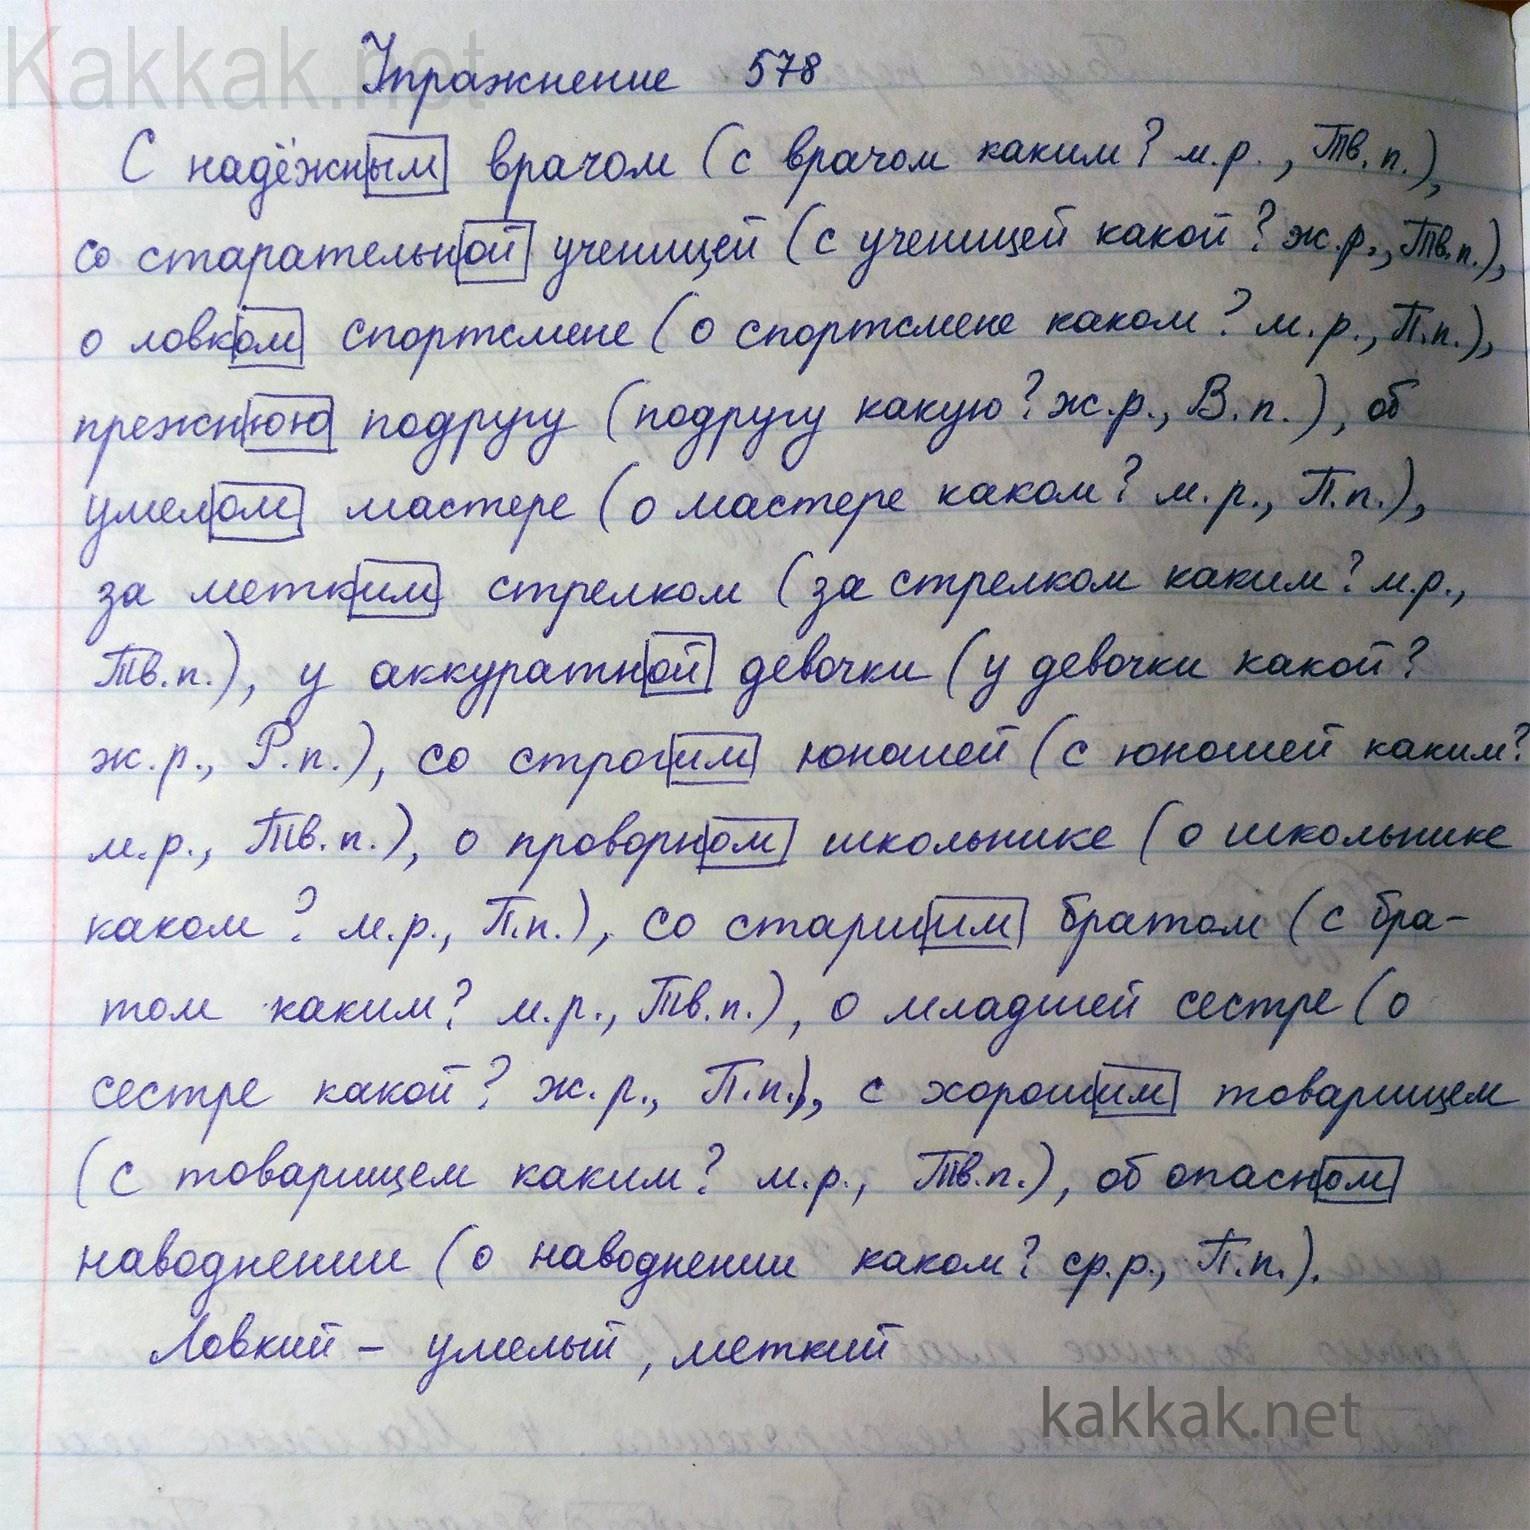 Kakkak.net
Упражнение 578
С надёжным врачом (с врачом каким? м.р., Тв.п.),
со старательной ученицей (с ученицей какой? ж.р., Тв.п.),
о ловком спортсмене (о спортсмене каком? м.р., П.п.),
прежнюю подругу (подругу какую? ж.р., В.п.), об
умелом мастере (о мастере каком? м.р., П.п.),
за метким стрелком (за стрелком каким? м.р.,
Тв.п.), у аккуратной девочки (у девочки какой?
ж.р., Р.п.), со строгим юношей (с юношей каким?
м.р., Тв.п.), о проворном школьнике (о школьнике
каком? м.р., П.п.), со старшим братом (с бра-
том каким? м.р., Тв.п.), о младшей сестре (о
сестре какой? ж.р., П.п.), с хорошим товарищем
(с товарищем каким? м.р., Тв.п.), об опасном
наводнении (о наводнении каком? ср.р., П.п.).
Ловкий – умелый, меткий
kakkak.net